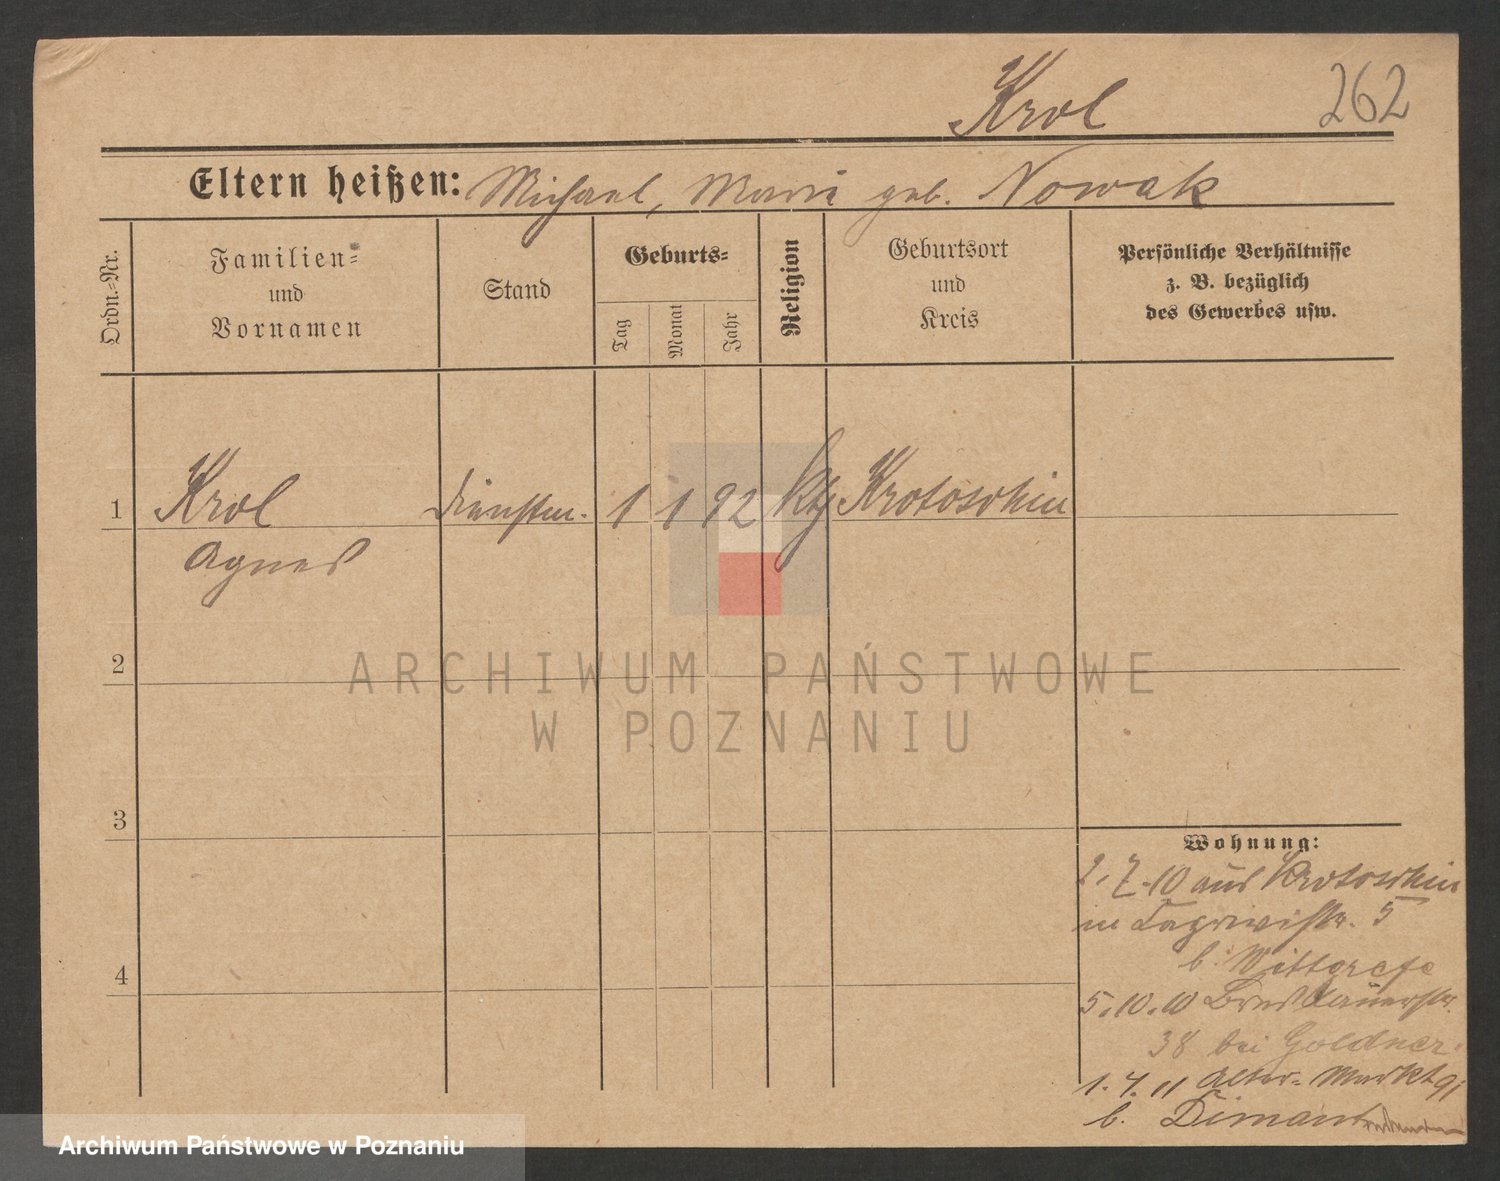 Krol
262
Eltern heißen: Michael, Maria geb. Nowak
Ordn.-Nr.
Familien-
und
Vornamen
Stand
Geburts-
Tag
Monat
Jahr
Religion
Geburtsort
und
Kreis
Persönliche Verhältnisse
z. B. bezüglich
des Gewerbes usw.
1 Krol Dienstm. 1 1 92 kth Krotoschin
Agnes
2
3
4
Wohnung:
2.7.10 aus Krotoschin
in 5
b. Wittgrefe
5.10.10 Breslauerstr.
38 bei Goldner
1.4.11 Alter-Markt 91
b. Dimant
ARCHIWUM PAŃSTWOWE
W POZNANIU
Archiwum Państwowe w Poznaniu